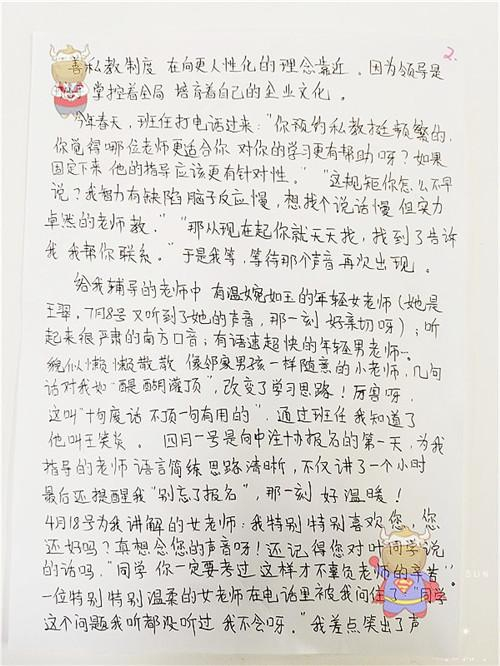 2.
善私教制度 在向更人性化的理念靠近。因为领导是
掌控着全局 培育着自己的企业文化。
今年春天，班任打电话过来："你预约私教挺频繁的，
你觉得哪位老师更适合你 对你的学习更有帮助呀？如果
固定下来 他的指导应该更有针对性。" "这规矩你怎么不早
说？我智力有缺陷 脑子反应慢，想找个说话慢 但实力
卓然的老师教。" "那从现在起你就天天找，找到了告诉
我 我帮你联系。"于是我等，等待那个声音 再次出现。
给我辅导的老师中 有温婉如玉的年轻女老师（她是
王羿，7月8号又听到了她的声音，那一刻 好亲切呀）；听
起来很严肃的南方口音；有话速超快的年轻男老师…
貌似懒懒散散 像邻家男孩一样随意的小老师，几句
话对我如"醍醐灌顶"，改变了学习思路！厉害呀，
这叫"十句废话 不顶一句有用的"，通过班任 我知道了
他叫王笑炎。 四月一号是向中注协报名的第一天，为我
指导的老师 语言简练 思路清晰，不仅讲了一个小时
最后还提醒我"别忘了报名"，那一刻 好温暖！
4月18号为我讲解的女老师：我特别特别喜欢您，您
还好吗？真想念您的声音呀！还记得您对叶同学说
的话吗，"同学 你一定要考过 这样才不辜负老师的辛苦"。
一位特别特别温柔的女老师在电话里被我问住了"同学
这个问题我听都没听过 我不会呀。"我差点笑出了声
SUN